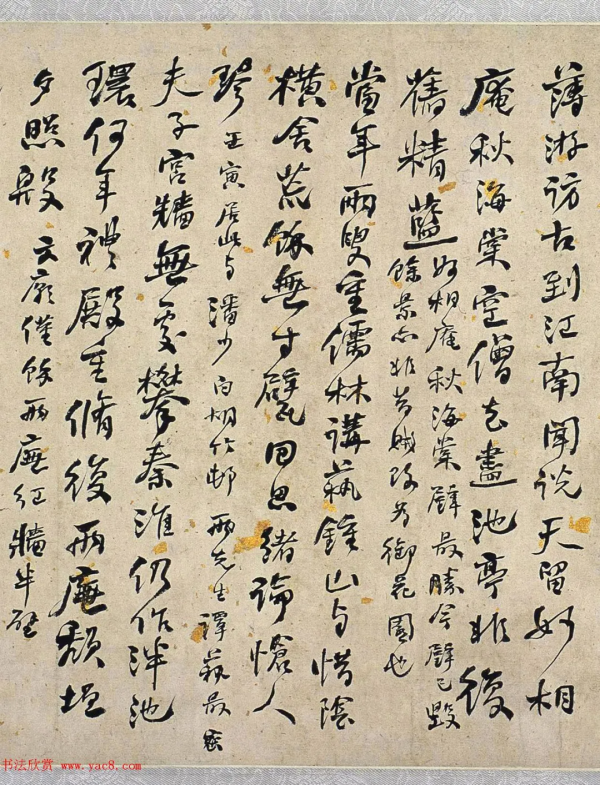 薄游訪古到江南聞說天留妙相
庵秋海棠空僧去盡池亭非復
舊精藍
妙相庵秋海棠壁最勝今壁已毀
餘景亦非昔賊改為御花園也
當年兩叟重儒林講蓺鍾山与惜陰
橫舍荒餘無寸甓回思緒論愴人
琴 壬寅居此与潘少白胡竹邨兩先生譚蓺最密
夫子宮牆無處攀秦淮仍作泮池
環何年禮殿重脩後兩廡頹垣
夕照殷 文廟僅餘兩廡紅牆半壁
书法欣赏 www.yac8.com